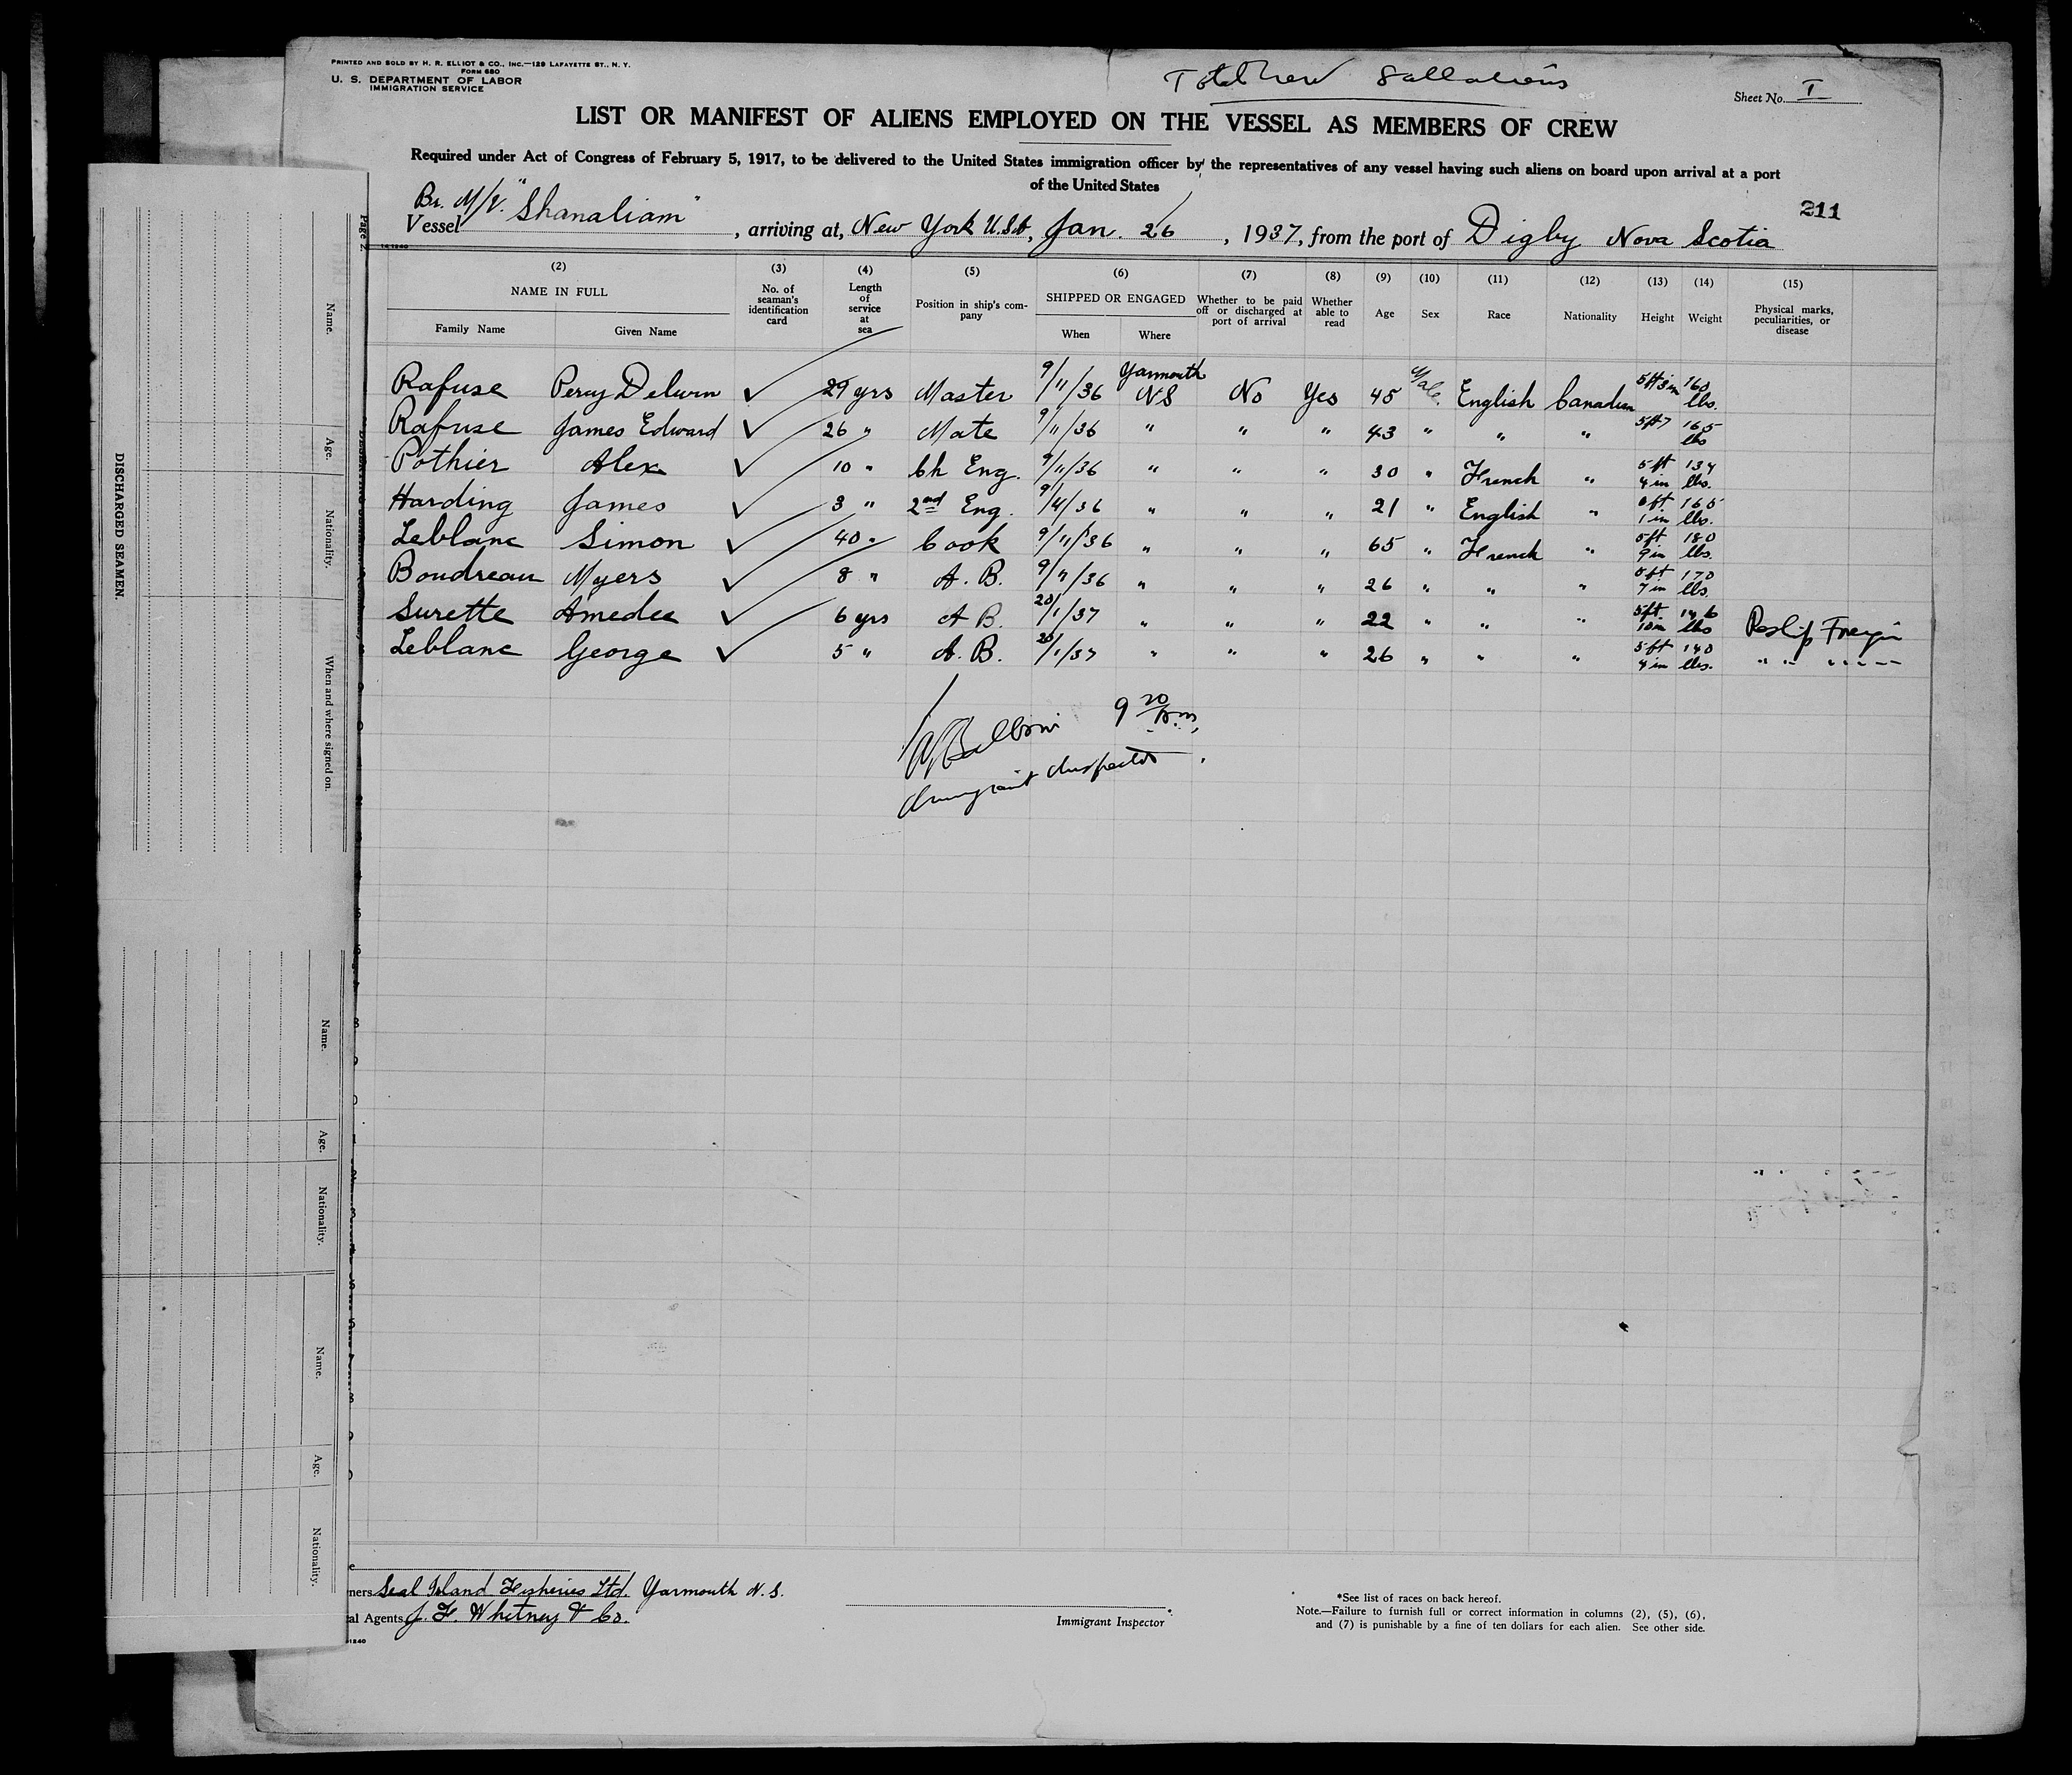 PRINTED AND SOLD BY H. R. ELLIOT & CO., INC.—129 LAFAYETTE ST., N. Y.
FORM 680
U. S. DEPARTMENT OF LABOR
IMMIGRATION SERVICE
Total Crew 8 all aliens
Sheet No. I
LIST OR MANIFEST OF ALIENS EMPLOYED ON THE VESSEL AS MEMBERS OF CREW
Required under Act of Congress of February 5, 1917, to be delivered to the United States immigration officer by the representatives of any vessel having such aliens on board upon arrival at a port
of the United States
211
Vessel Br. M/V. "Shanaliam", arriving at, New York U.S.A., Jan. 26, 1937, from the port of Digby Nova Scotia
(2) (3) (4) (5) (6) (7) (8) (9) (10) (11) (12) (13) (14) (15)
NAME IN FULL
Family Name Given Name
No. of seaman's identification card
Length of service at sea
Position in ship's company
SHIPPED OR ENGAGED
When Where
Whether to be paid off or discharged at port of arrival
Whether able to read
Age Sex Race Nationality Height Weight
Physical marks, peculiarities, or disease
Rafuse Percy Delwin ✓ 29 yrs Master 9/11/36 Yarmouth NS No Yes 45 Male. English Canadian 5ft 8in 160 lbs.
Rafuse James Edward ✓ 26 " Mate 9/11/36 " " " 43 " " " 5ft 7 165 lbs
Pothier Alex ✓ 10 " Ch Eng. 9/11/36 " " " 30 " French " 5ft 4in 134 lbs.
Harding James ✓ 3 " 2nd Eng. 9/11/36 " " " 21 " English " 1in 165 lbs.
Leblanc Simon ✓ 40 " Cook 9/11/36 " " " 65 " French " 5ft 9in 180 lbs.
Boudreau Myers ✓ 8 " A. B. 9/11/36 " " " 26 " " " 5ft 7in 170 lbs.
Surette Amedee ✓ 6 yrs A B. 20/1/37 " " " 22 " " " 5ft 10in 146 lbs
Leblanc George ✓ 5 " A. B. 20/1/37 " " " 26 " " " 5ft 4in 140 lbs.
9 20
Immigrant Inspector
Page 2.
DISCHARGED SEAMEN.
Name.
Age.
Nationality.
When and where signed on.
Name.
Age.
Nationality.
Name.
Age.
Nationality.
ners Seal Island Fisheries Ltd. Yarmouth N. S.
al Agents J. F. Whitney & Co.
Immigrant Inspector
*See list of races on back hereof.
Note.—Failure to furnish full or correct information in columns (2), (5), (6),
and (7) is punishable by a fine of ten dollars for each alien. See other side.